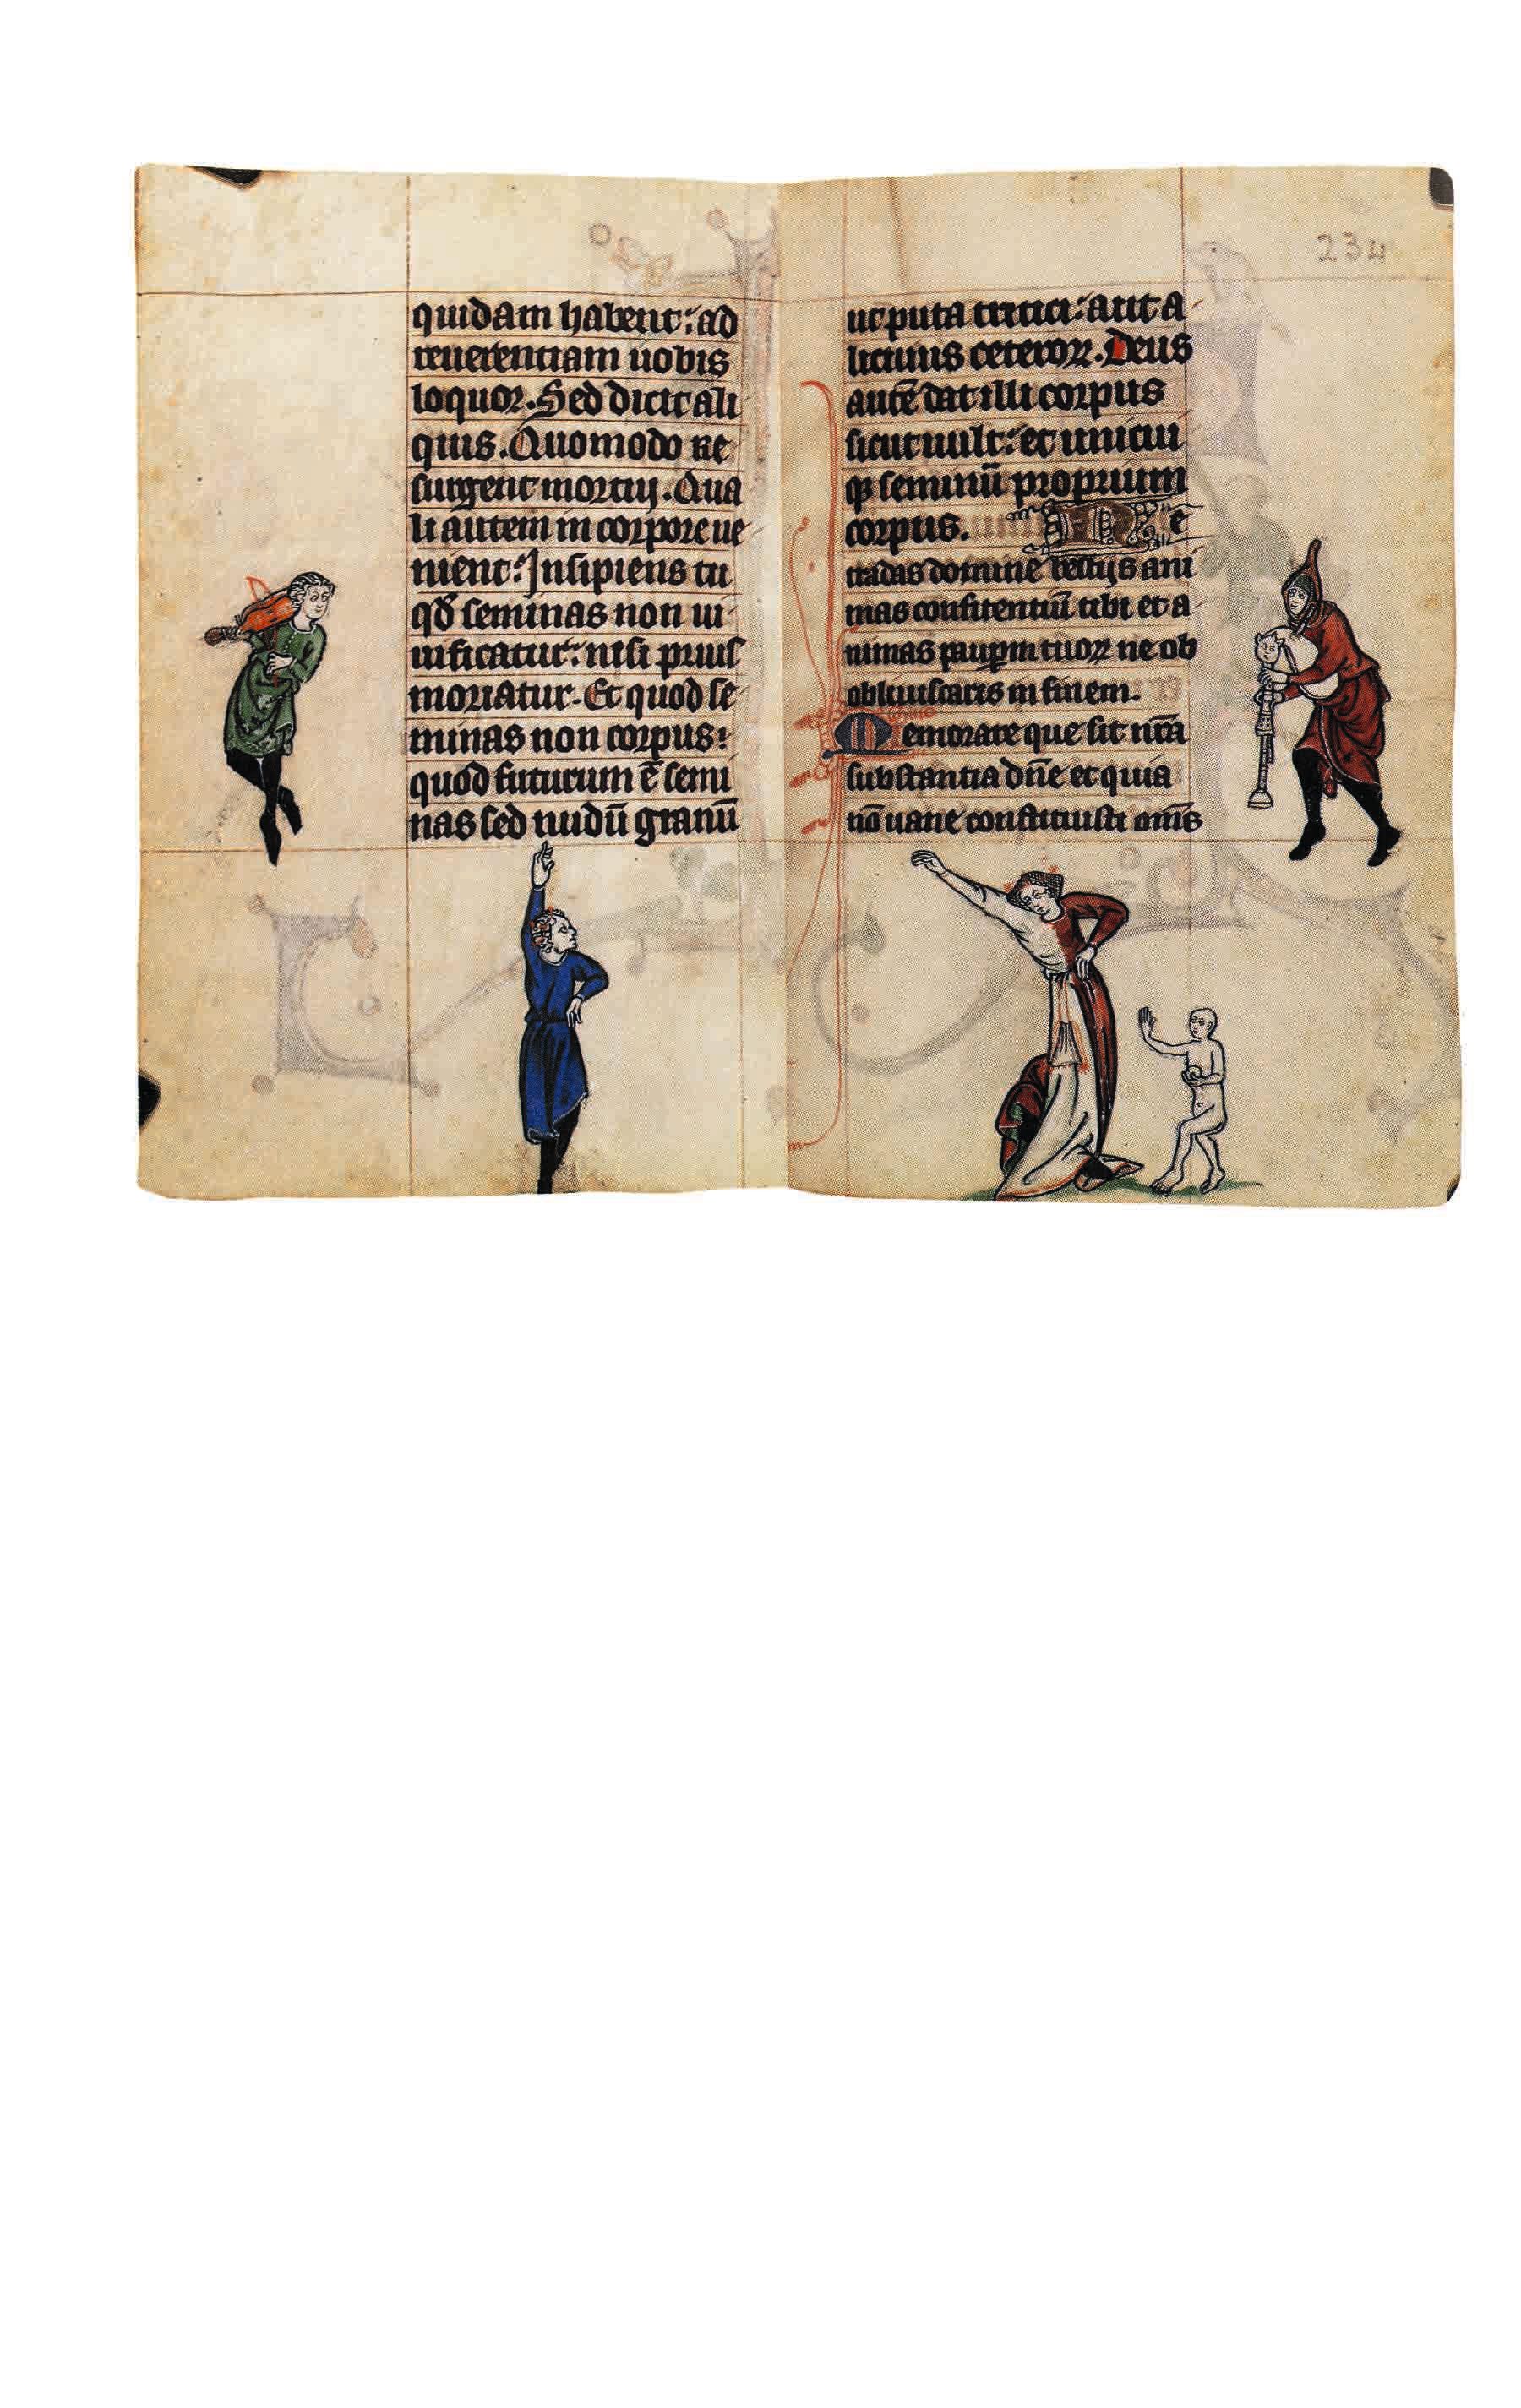 quidam habent: ad
reuerentiam uobis
loquor. Sed dicit ali
quis. Quomodo re
surgent mortui. Qua
li autem in corpore ue
nient: Insipiens tu
qđ seminas non ui
uificatur: nisi prius
moriatur. Et quod se
minas non corpus:
quod futurum ē semi
nas sed nudū granū
234
ut puta tritici: aut a
licuius ceteroꝝ. Deus
autē dat illi corpus
sicut uult: et unicui
qꝫ seminū proprium
corpus. Ne
tradas domine bestijs ani
mas confitentiū tibi et a
nimas pauꝑm tuoꝝ ne ob
obliuiscaris in finem.
Memorare que sit nr̄a
substantia dn̄e et quia
nō uane constituisti om̄s